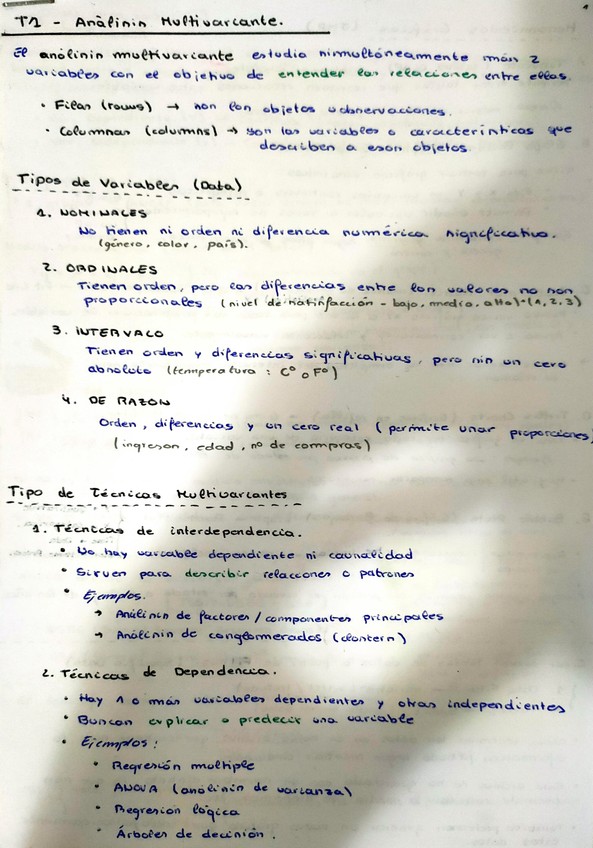 T1 - Análisis Multivariante.
El análisis multivariante estudia simultáneamente más 2
variables con el objetivo de entender las relaciones entre ellas.
• Filas (rows) → son los objetos u observaciones.
• Columnas (columns) → son las variables o características que
describen a esos objetos.
Tipos de Variables (Data)
1. NOMINALES
No tienen ni orden ni diferencia numérica significativa.
(género, color, país).
2. ORDINALES
Tienen orden, pero las diferencias entre los valores no son
proporcionales (nivel de satisfacción - bajo, medio, alto)-(1, 2, 3)
3. INTERVALO
Tienen orden y diferencias significativas, pero sin un cero
absoluto (temperatura: Cº o Fº)
4. DE RAZÓN
Orden, diferencias y un cero real (permite usar proporciones)
(ingresos, edad, nº de compras)
Tipo de Técnicas Multivariantes
1. Técnicas de interdependencia.
• No hay variable dependiente ni causalidad
• Sirven para describir relaciones o patrones
• Ejemplos.
→ Análisis de factores / componentes principales
→ Análisis de conglomerados (clusters)
2. Técnicas de Dependencia.
• Hay 1 o más variables dependientes y otras independientes
• Buscan explicar o predecir una variable
• Ejemplos:
• Regresión multiple
• ANOVA (análisis de varianza)
• Regresión lógica
• Árboles de decisión.